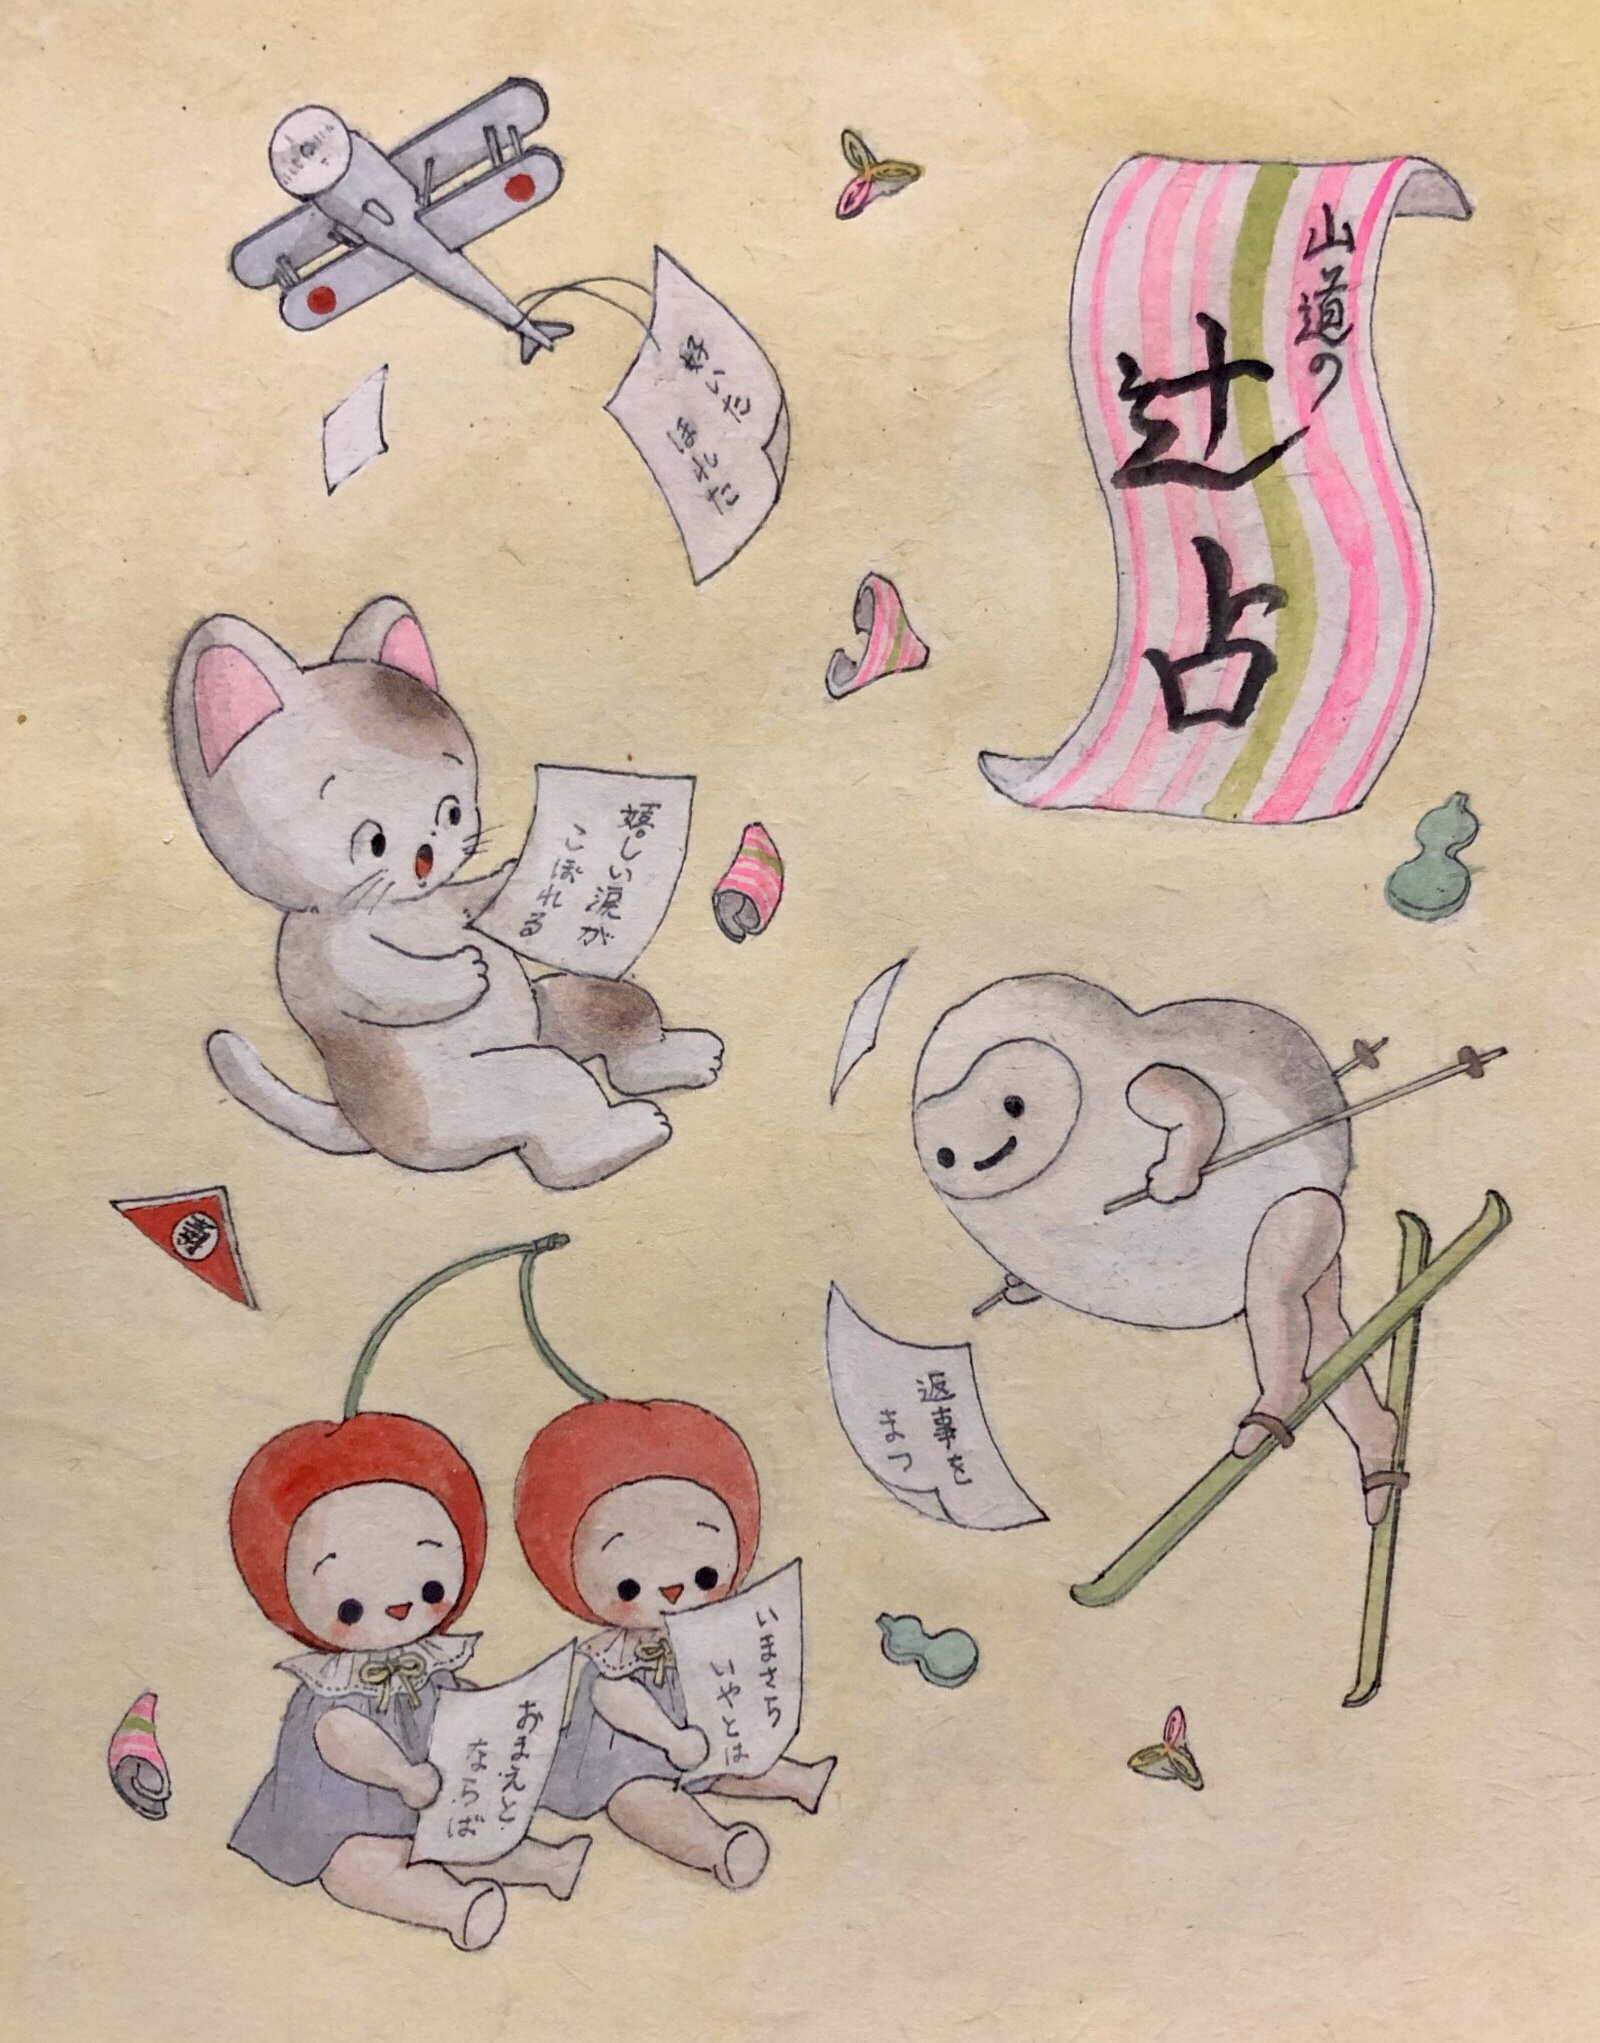 山道の
辻占
嬉しい涙が
こぼれる
返事を
まつ
いまさら
いやとは
おまえと
ならば